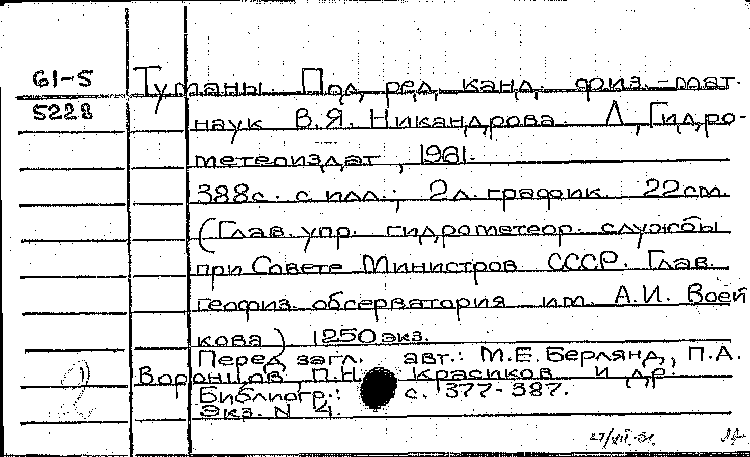 61-5
5228
Туманы. Под ред. канд. физ.-мат.
наук В.Я. Никандрова. Л., Гидро-
метеоиздат, 1961.
388с. с илл.; 2л. график. 22см.
(Глав. упр. гидрометеор. службы
при Совете Министров СССР. Глав.
геофиз. обсерватория им. А.И. Воей
кова) 1250экз.
Перед загл. авт.: М.Е.Берлянд, П.А.
Воронцов, П.Н. Красиков и др.
Библиогр.: с. 377-387.
Экз. N 4.
2